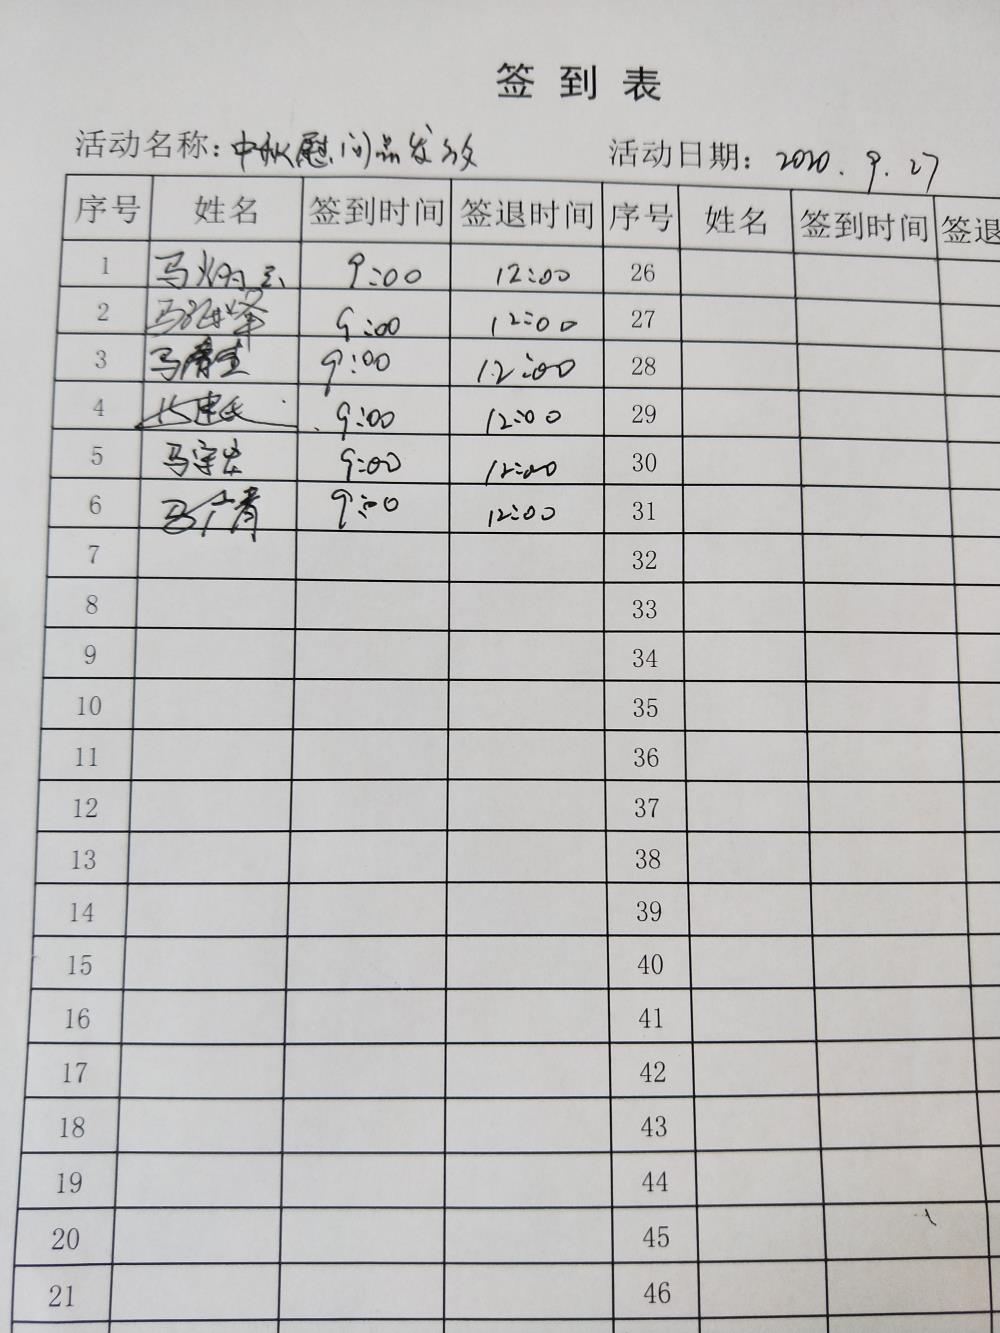 签到表
活动名称：中秋慰问品发放 活动日期：2020.9.27
序号 姓名 签到时间 签退时间 序号 姓名 签到时间 签退
1 马 9:00 12:00 26
2 马 9:00 12:00 27
3 马 9:00 12:00 28
4 9:00 12:00 29
5 马宇宏 9:00 12:00 30
6 马广青 9:00 12:00 31
7 32
8 33
9 34
10 35
11 36
12 37
13 38
14 39
15 40
16 41
17 42
18 43
19 44
20 45
21 46